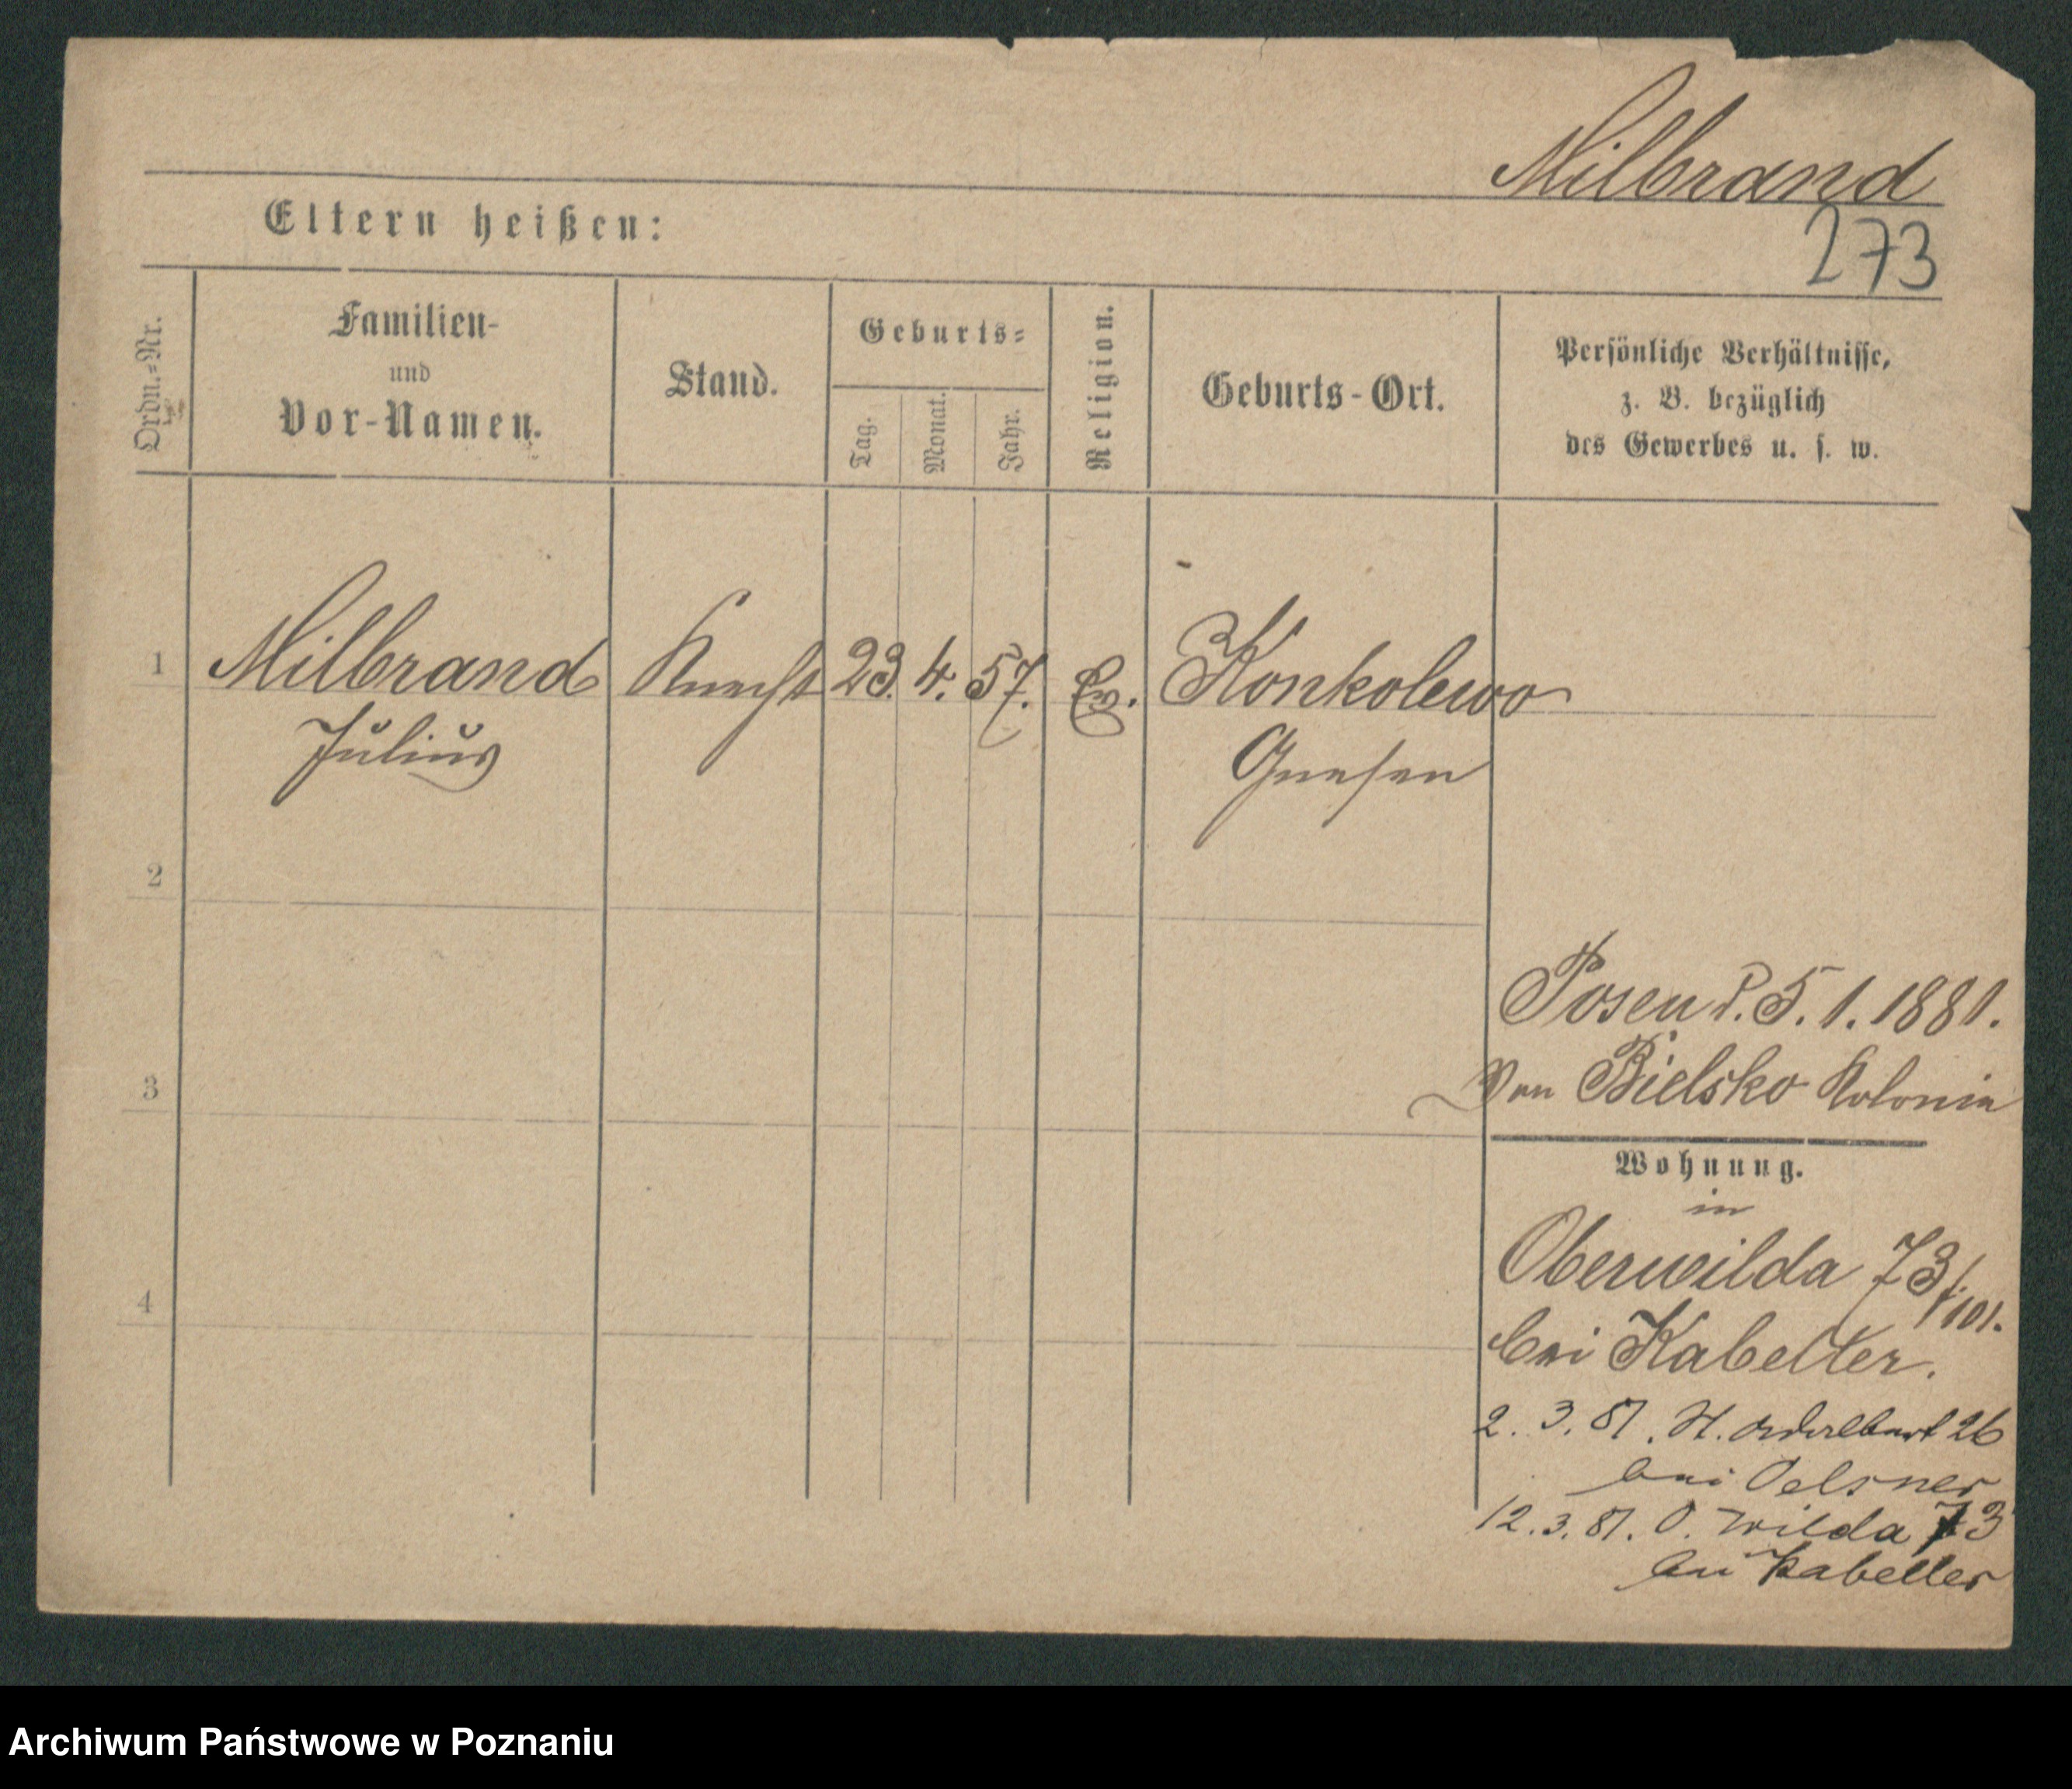 Milbrand
273
Eltern heißen:
Ordn.-Nr.
Familien-
und
Vor-Namen.
Stand.
Geburts-
Tag.
Monat.
Jahr.
Religion.
Geburts-Ort.
Persönliche Verhältnisse,
z. B. bezüglich
des Gewerbes u. s. w.
1 Milbrand Knecht 23. 4. 57. Ev. Konkolewo
Julius Gnesen
2
3
4
Posen d. 5. 1. 1881.
Von Bielsko Kolonie
Wohnung.
in
Oberwilda 73/101.
bei Kabelter.
2. 3. 81. St. 26
bei Oelsner
12. 3. 81. O. Wilda 73
bei Kabelter
Archiwum Państwowe w Poznaniu